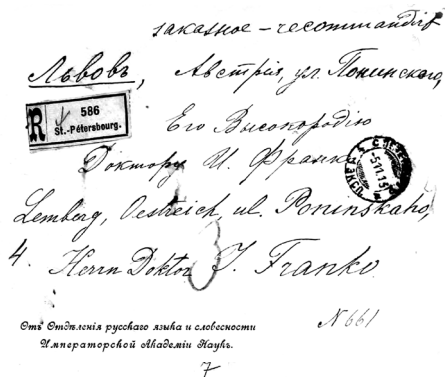 заказное – recommandirt
Львовъ, Австрія, ул. Понинского,
R 586
St.-Pétersbourg.
Его Высокородію
Доктору И. Франко
Lemberg, Oestreich, ul. Poninskaho,
4. Herrn Doktor I. Franko.
Отъ Отдѣленія русскаго языка и словесности
Императорской Академіи Наукъ.
N 661
7